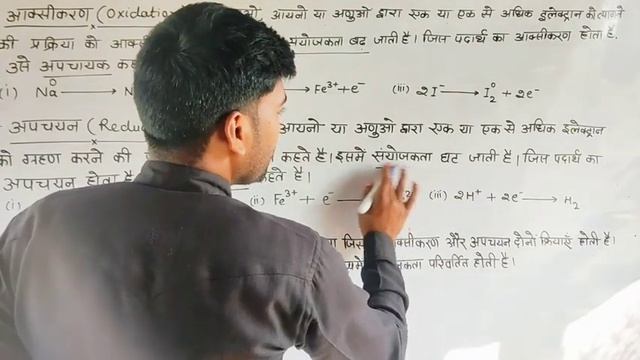 आक्सीकरण (Oxidatio आयनो या अणुओ द्वारा एक या एक से अधिक इलेक्ट्रान को त्यागने
की प्रक्रिया को आक्स संयोजकता बढ़ जाती है। जिस पदार्थ का आक्सीकरण होता है,
उसे अपचायक कह
(i) Na⁰ ⟶ N ⟶ Fe³⁺ + e⁻ (iii) 2I⁻ ⟶ I₂⁰ + 2e⁻
अपचयन (Redu आयनो या अणुओ द्वारा एक या एक से अधिक इलेक्ट्रान
को ग्रहण करने की कहते है। इसमें संयोजकता घट जाती है। जिस पदार्थ का
अपचयन होता है कहते है।
(i) (ii) Fe³⁺ + e⁻ ⟶ (iii) 2H⁺ + 2e⁻ ⟶ H₂
जिस आक्सीकरण और अपचयन दोनों क्रियाएं होती है।
परिवर्तित होती है।